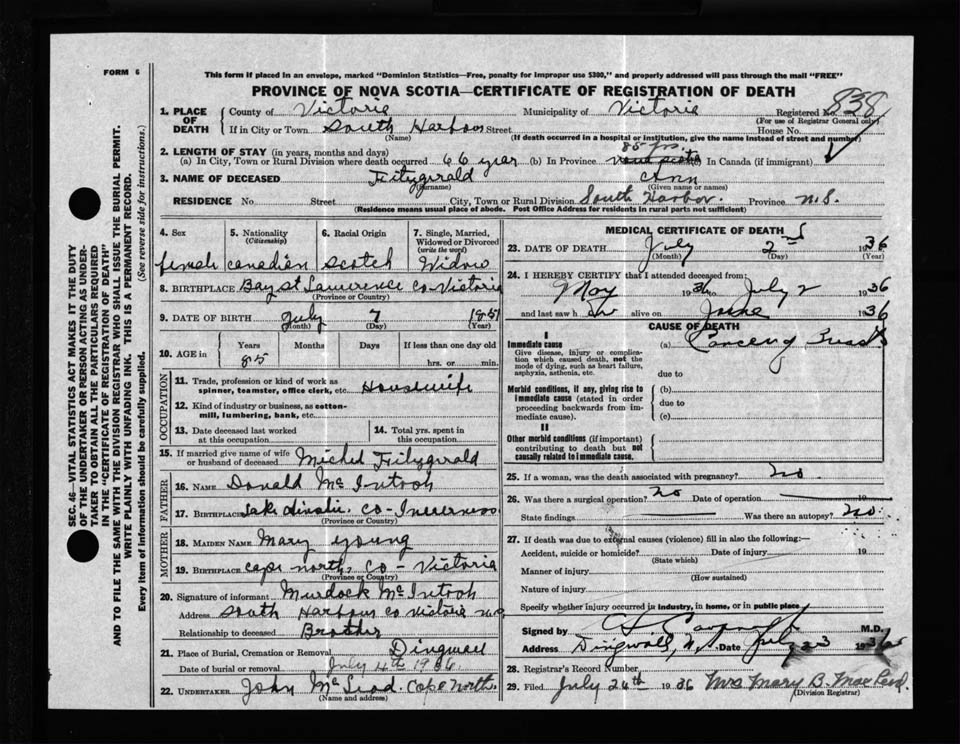 FORM 6
This form if placed in an envelope, marked "Dominion Statistics—Free, penalty for improper use $300," and properly addressed will pass through the mail "FREE"
PROVINCE OF NOVA SCOTIA—CERTIFICATE OF REGISTRATION OF DEATH
1. PLACE OF DEATH
County of Victoria Municipality of Victoria Registered No. 838
(For use of Registrar General only)
If in City or Town South Harbour Street House No.
(Name) (If death occurred in a hospital or institution, give the name instead of street and number)
2. LENGTH OF STAY (in years, months and days) 85 yrs.
(a) In City, Town or Rural Division where death occurred 66 year (b) In Province Nova Scotia In Canada (if immigrant)
3. NAME OF DECEASED Fitzgerald Ann
(Surname) (Given name or names)
RESIDENCE No. Street City, Town or Rural Division South Harbor. Province N.S.
(Residence means usual place of abode. Post Office Address for residents in rural parts not sufficient)
4. Sex 5. Nationality (Citizenship) 6. Racial Origin 7. Single, Married, Widowed or Divorced (write the word)
female canadian scotch Widow
8. BIRTHPLACE Bay st Lawrence Co Victoria
(Province or Country)
9. DATE OF BIRTH July 7 1851
(Month) (Day) (Year)
10. AGE in Years Months Days If less than one day old
85 hrs. or min.
OCCUPATION
11. Trade, profession or kind of work as spinner, teamster, office clerk, etc. Housewife
12. Kind of industry or business, as cotton-mill, lumbering, bank, etc.
13. Date deceased last worked at this occupation
14. Total yrs. spent in this occupation
15. If married give name of wife or husband of deceased Michel Fitzgerald
FATHER
16. NAME Donald McIntosh
17. BIRTHPLACE Lake Ainslie Co - Inverness
(Province or Country)
MOTHER
18. MAIDEN NAME Mary young
19. BIRTHPLACE cape north, Co - Victoria
(Province or Country)
20. Signature of informant Murdock McIntosh
Address South Harbour co Victoria N.S
Relationship to deceased Brother
21. Place of Burial, Cremation or Removal Dingwall
Date of burial or removal July 4th 1936
22. UNDERTAKER John McLeod. Cape North.
(Name and address)
MEDICAL CERTIFICATE OF DEATH
23. DATE OF DEATH July 2nd 1936
(Month) (Day) (Year)
24. I HEREBY CERTIFY that I attended deceased from:
May 1936 to July 2 1936
and last saw her alive on June 1936
CAUSE OF DEATH
I
Immediate cause (a)
Give disease, injury or complication which caused death, not the mode of dying, such as heart failure, asphyxia, asthenia, etc.
due to
Morbid conditions, if any, giving rise to immediate cause (stated in order proceeding backwards from immediate cause).
(b)
due to
(c)
II
Other morbid conditions (if important) contributing to death but not causally related to immediate cause.
25. If a woman, was the death associated with pregnancy? no
26. Was there a surgical operation? no Date of operation 19
State findings Was there an autopsy? no.
27. If death was due to external causes (violence) fill in also the following:—
Accident, suicide or homicide? Date of injury 19
(State which)
Manner of injury
(How sustained)
Nature of injury
Specify whether injury occurred in industry, in home, or in public place
Signed by M.D.
Address Dingwall, N.S. Date July 23 1936
28. Registrar's Record Number
29. Filed July 24th 1936 Mrs Mary B. MacLeod.
(Division Registrar)
SEC. 46—VITAL STATISTICS ACT MAKES IT THE DUTY
OF THE UNDERTAKER OR PERSON ACTING AS UNDER-
TAKER TO OBTAIN ALL THE PARTICULARS REQUIRED
IN THE "CERTIFICATE OF REGISTRATION OF DEATH"
AND TO FILE THE SAME WITH THE DIVISION REGISTRAR WHO SHALL ISSUE THE BURIAL PERMIT.
WRITE PLAINLY WITH UNFADING INK. THIS IS A PERMANENT RECORD.
Every item of information should be carefully supplied. (See reverse side for instructions.)